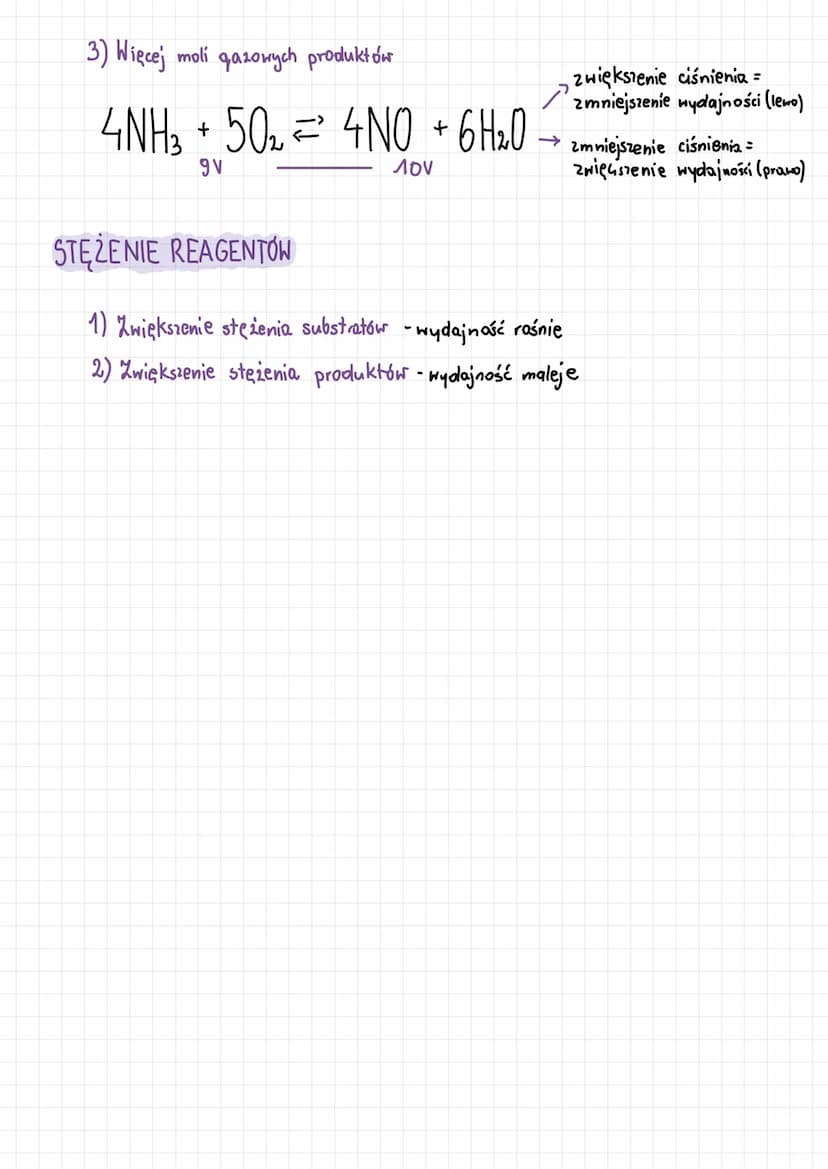 3) Więcej moli gazowych produktów
zwiększenie ciśnienia =
zmniejszenie wydajności (lewo)
4NH₃ + 5O₂ ⇄ 4NO + 6H₂O
→ zmniejszenie ciśnienia =
zwiększenie wydajności (prawo)
9V 10V
STĘŻENIE REAGENTÓW
1) Zwiększenie stężenia substratów - wydajność rośnie
2) Zwiększenie stężenia produktów - wydajność maleje